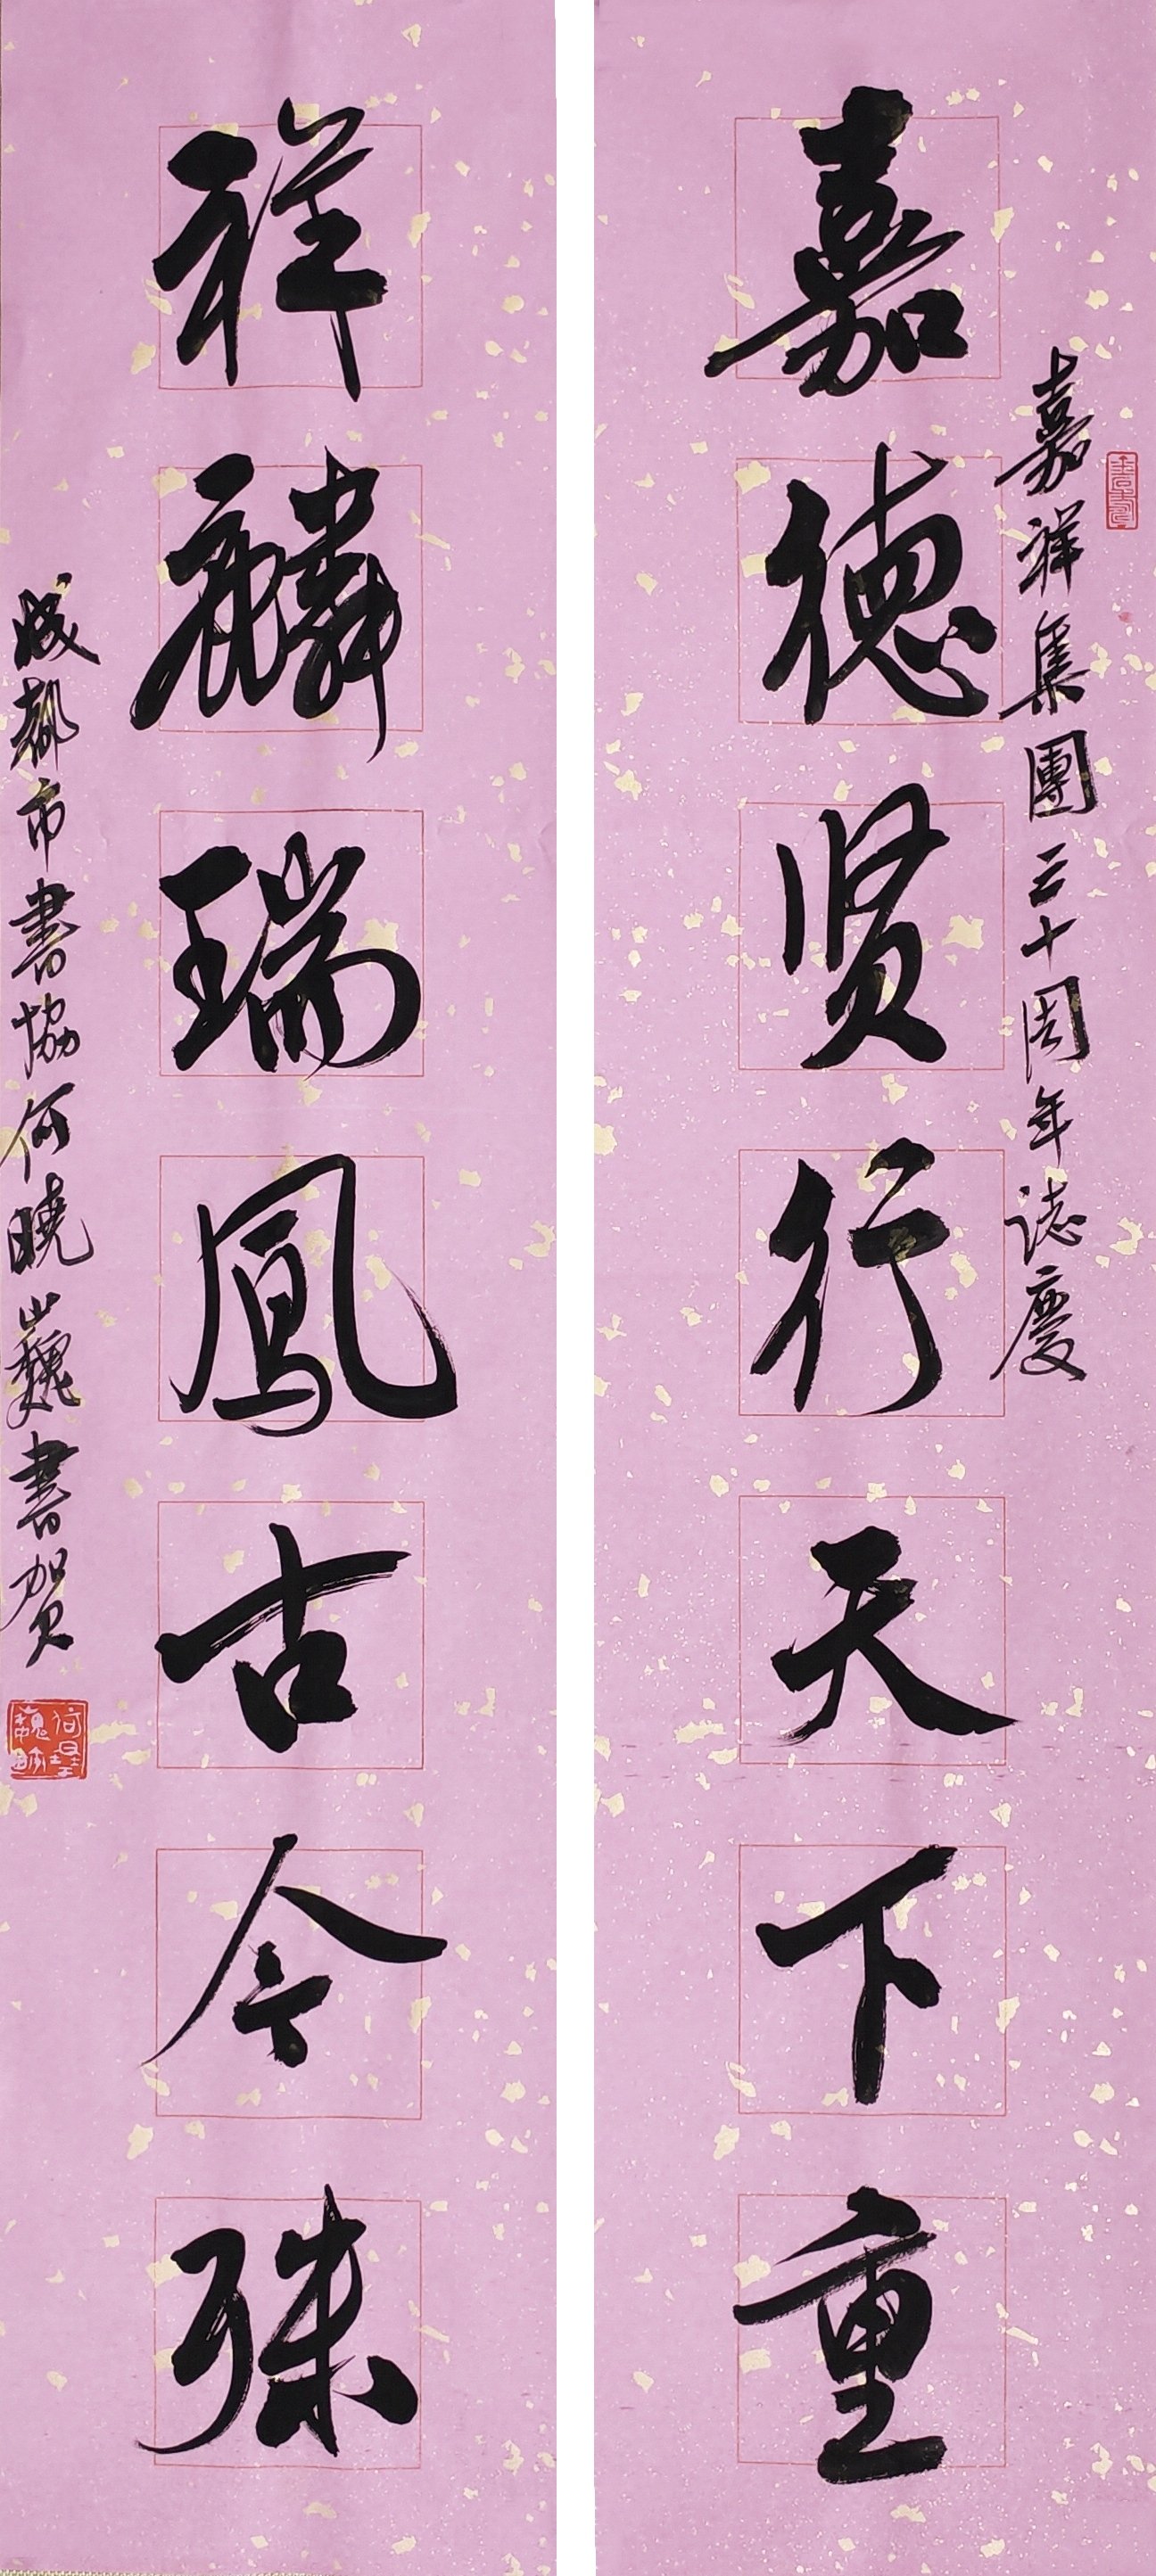 嘉德贤行天下重
嘉祥集團三十周年誌慶
祥麟瑞鳳古今殊
成都市書協何曉巍書賀